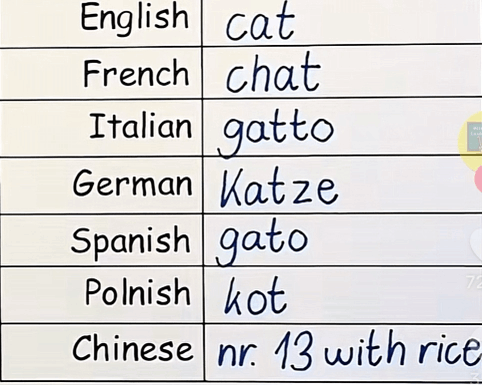 English cat
French chat
Italian gatto
German Katze
Spanish gato
Polnish kot
Chinese nr. 13 with rice